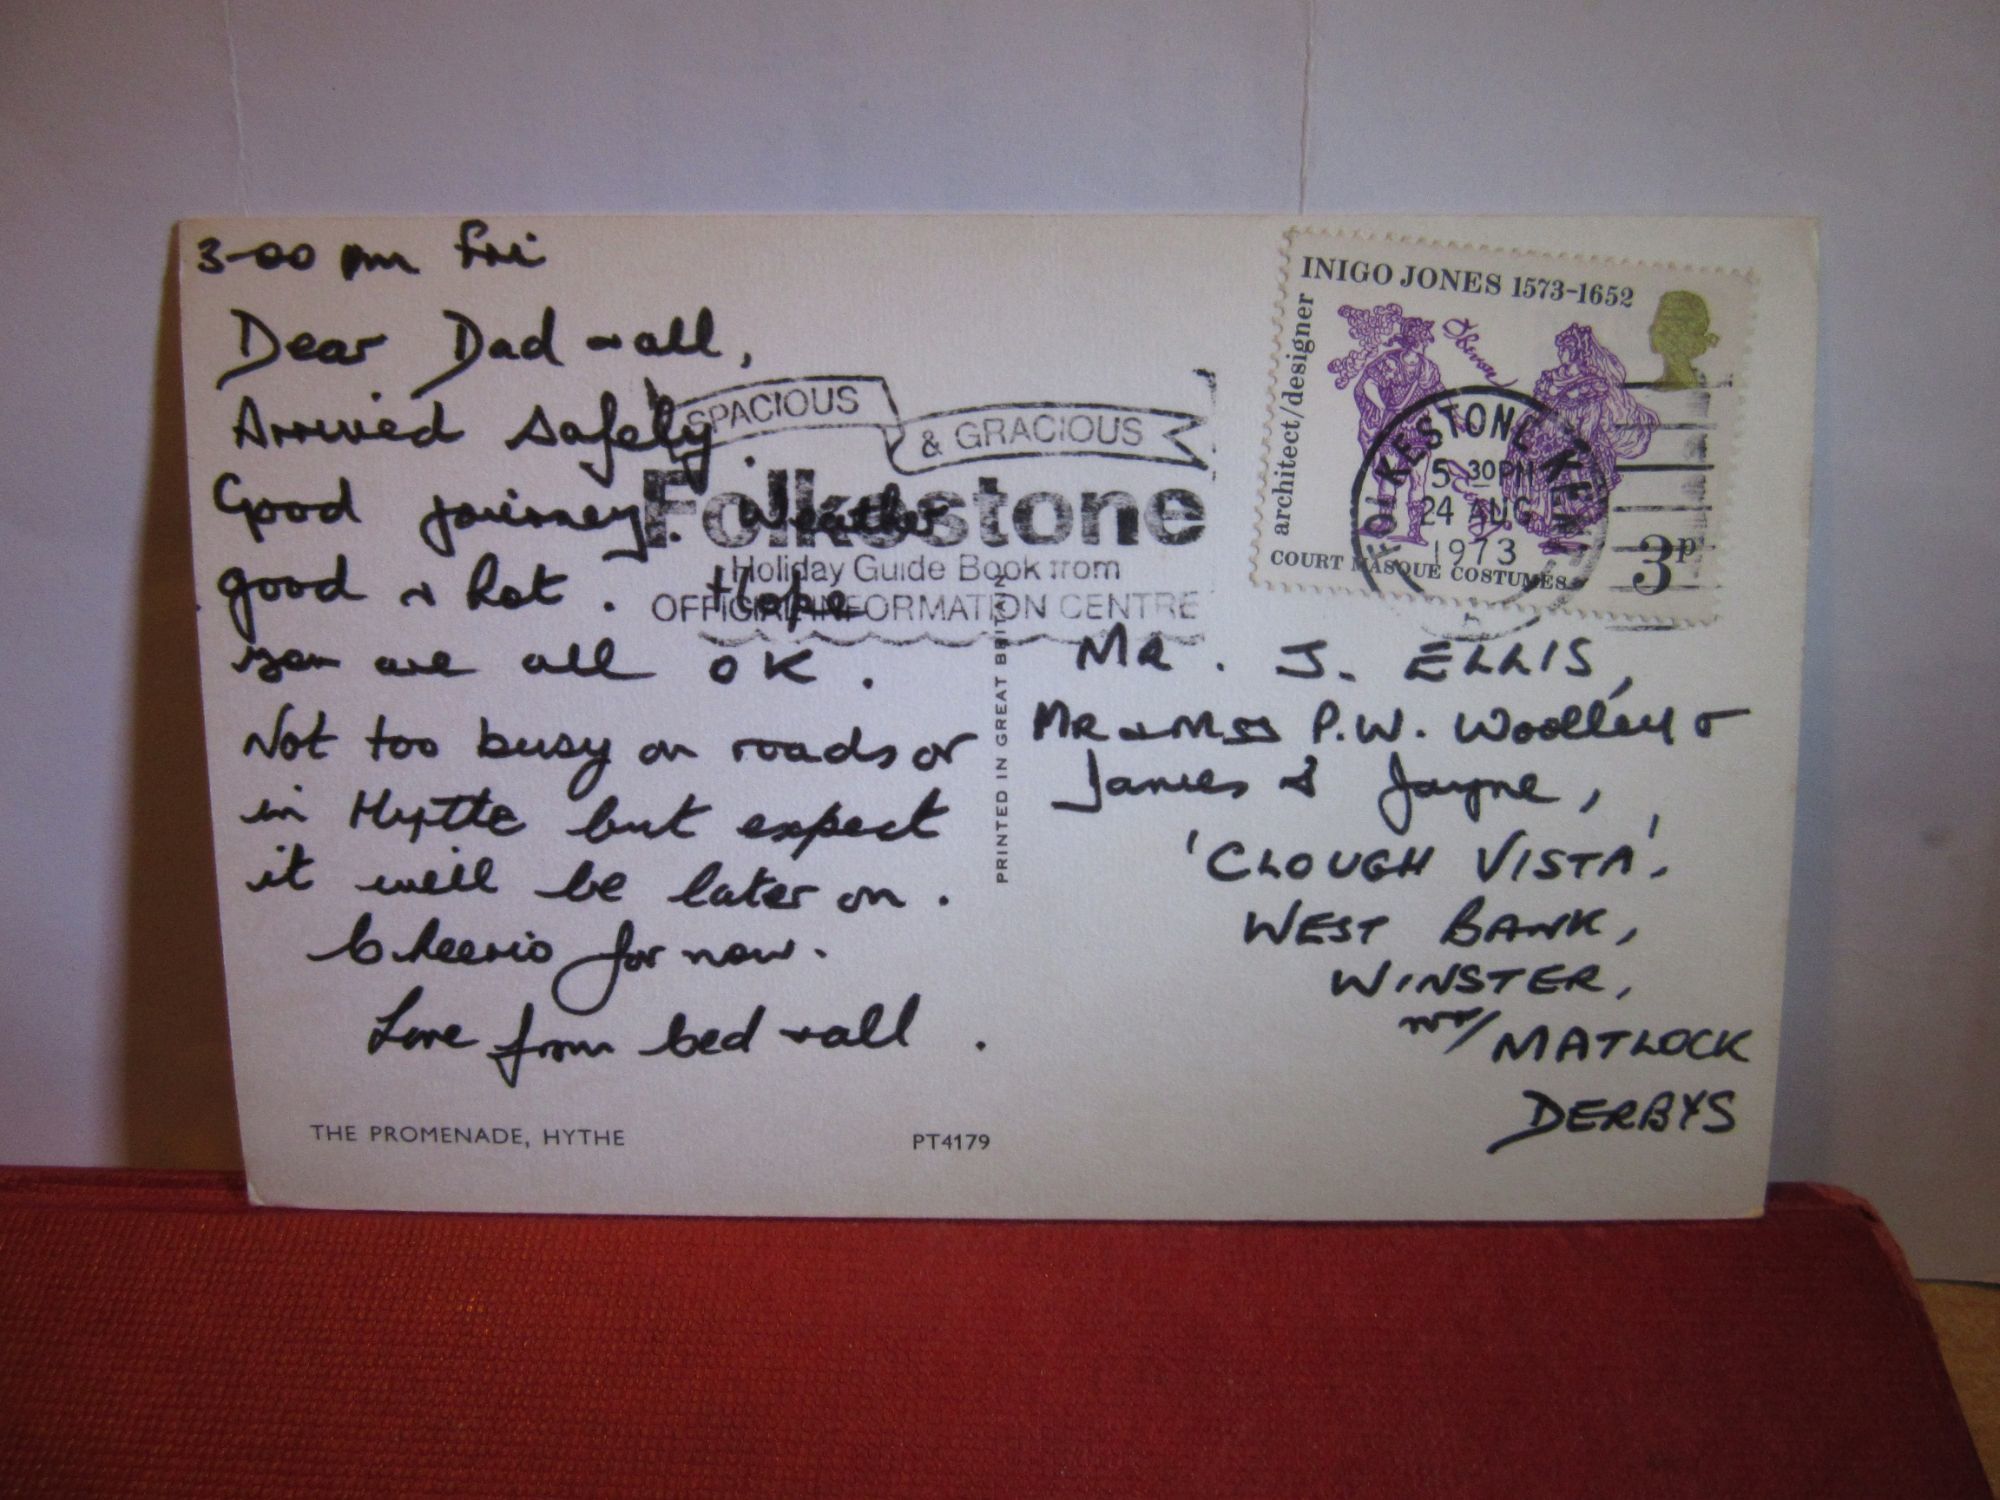 3-00 pm Fri
Dear Dad & all,
Arrived safely.
Good journey. Weather
good & hot. Hope
you are all OK.
Not too busy on roads or
in Hythe but expect
it will be later on.
Cheerio for now.
Love from & all.
THE PROMENADE, HYTHE
PT4179
PRINTED IN GREAT BRITAIN
SPACIOUS
& GRACIOUS
Folkestone
Holiday Guide Book from
OFFICIAL INFORMATION CENTRE
INIGO JONES 1573-1652
architect/designer
COURT MASQUE COSTUMES
3P
FOLKESTONE KENT
5 30PM
24 AUG
1973
A
MR. J. ELLIS,
MR & MRS P.W. Woolley &
James & Jayne,
'CLOUGH VISTA',
WEST BANK,
WINSTER,
nr/ MATLOCK
DERBYS